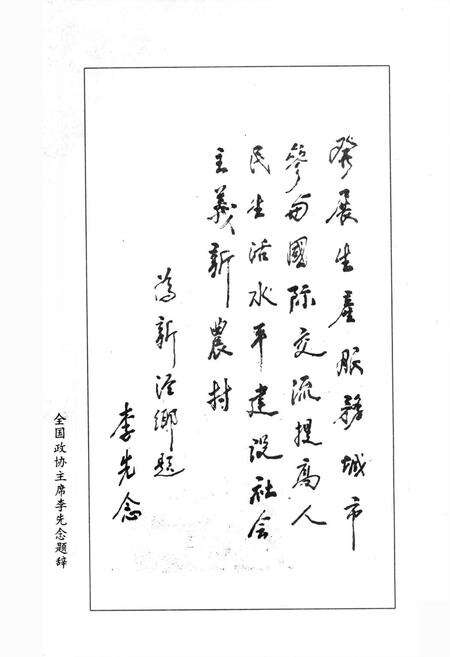 發展生產服務城市
參与國际交流提高人
民生活水平建设社会
主義新農村
为新泾鄉题
李先念
全国政协主席李先念题辞